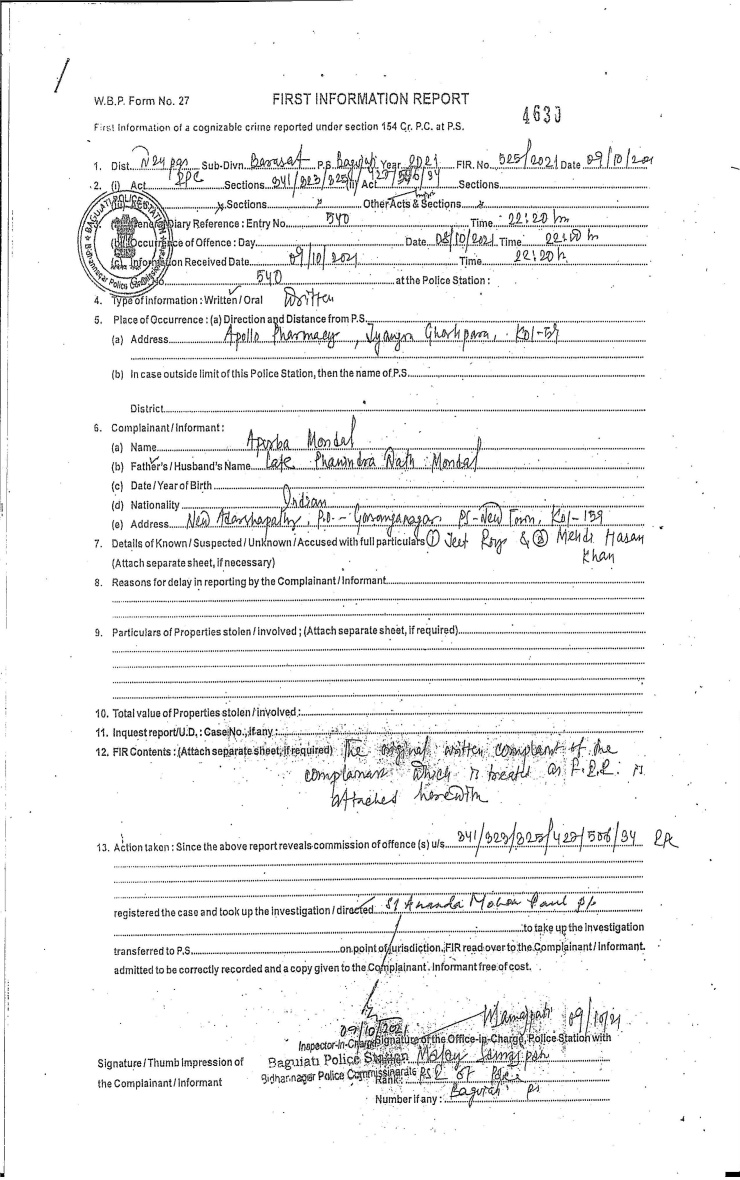 W.B.P. Form No. 27
FIRST INFORMATION REPORT
4630
First Information of a cognizable crime reported under section 154 Cr. P.C. at P.S.
1. Dist. N 24 pgs Sub-Divn. Barasat P.S. Baguiati Year 2021 FIR. No. 525/2021 Date 09/10/2021
2. (i) Act IPC Sections 341/323/325/ (ii) Act 427/506/34 Sections
Sections x Other Acts & Sections x
General Diary Reference : Entry No. 540 Time 22:20 hr
(b) Occurrence of Offence : Day Date 08/10/2021 Time 22:00 h
(c) Information Received Date 09/10/2021 Time 22:20 h
No. 540 at the Police Station :
4. Type of Information : Written / Oral Written
5. Place of Occurrence : (a) Direction and Distance from P.S.
(a) Address Apollo Pharmacy, Jyangra Ghoshpara, Kol-59
(b) In case outside limit of this Police Station, then the name of P.S.
District
6. Complainant / Informant :
(a) Name Apurba Mondal
(b) Father's / Husband's Name Late Phanindra Nath Mondal
(c) Date / Year of Birth
(d) Nationality Indian
(e) Address New Adarshapally, P.O. - Gouranganagar, PS - New Town, Kol-159
7. Details of Known / Suspected / Unknown / Accused with full particulars ① Jeet Roy & ② Mehdi Hasan
Khan
(Attach separate sheet, if necessary)
8. Reasons for delay in reporting by the Complainant / Informant
9. Particulars of Properties stolen / involved ; (Attach separate sheet, if required)
10. Total value of Properties stolen / involved :
11. Inquest report / U.D, : Case No., if any :
12. FIR Contents : (Attach separate sheet, if required) The original written complaint of the
complainant which is treated as F.I.R. is
attached herewith
13. Action taken : Since the above report reveals commission of offence (s) u/s. 341/323/325/427/506/34 IPC
registered the case and took up the Investigation / directed SI Ananda Mohan Paul
to take up the investigation
transferred to P.S. on point of jurisdiction, FIR read over to the Complainant / Informant.
admitted to be correctly recorded and a copy given to the Complainant. Informant free of cost.
09/10/2021
09/10/21
Inspector-in-Charge
Signature of the Office-in-Charge, Police Station with
Baguiati Police Station
Bidhannagar Police Commissionerate
Rank :
Signature / Thumb Impression of
the Complainant / Informant
Number if any : Baguiati PS